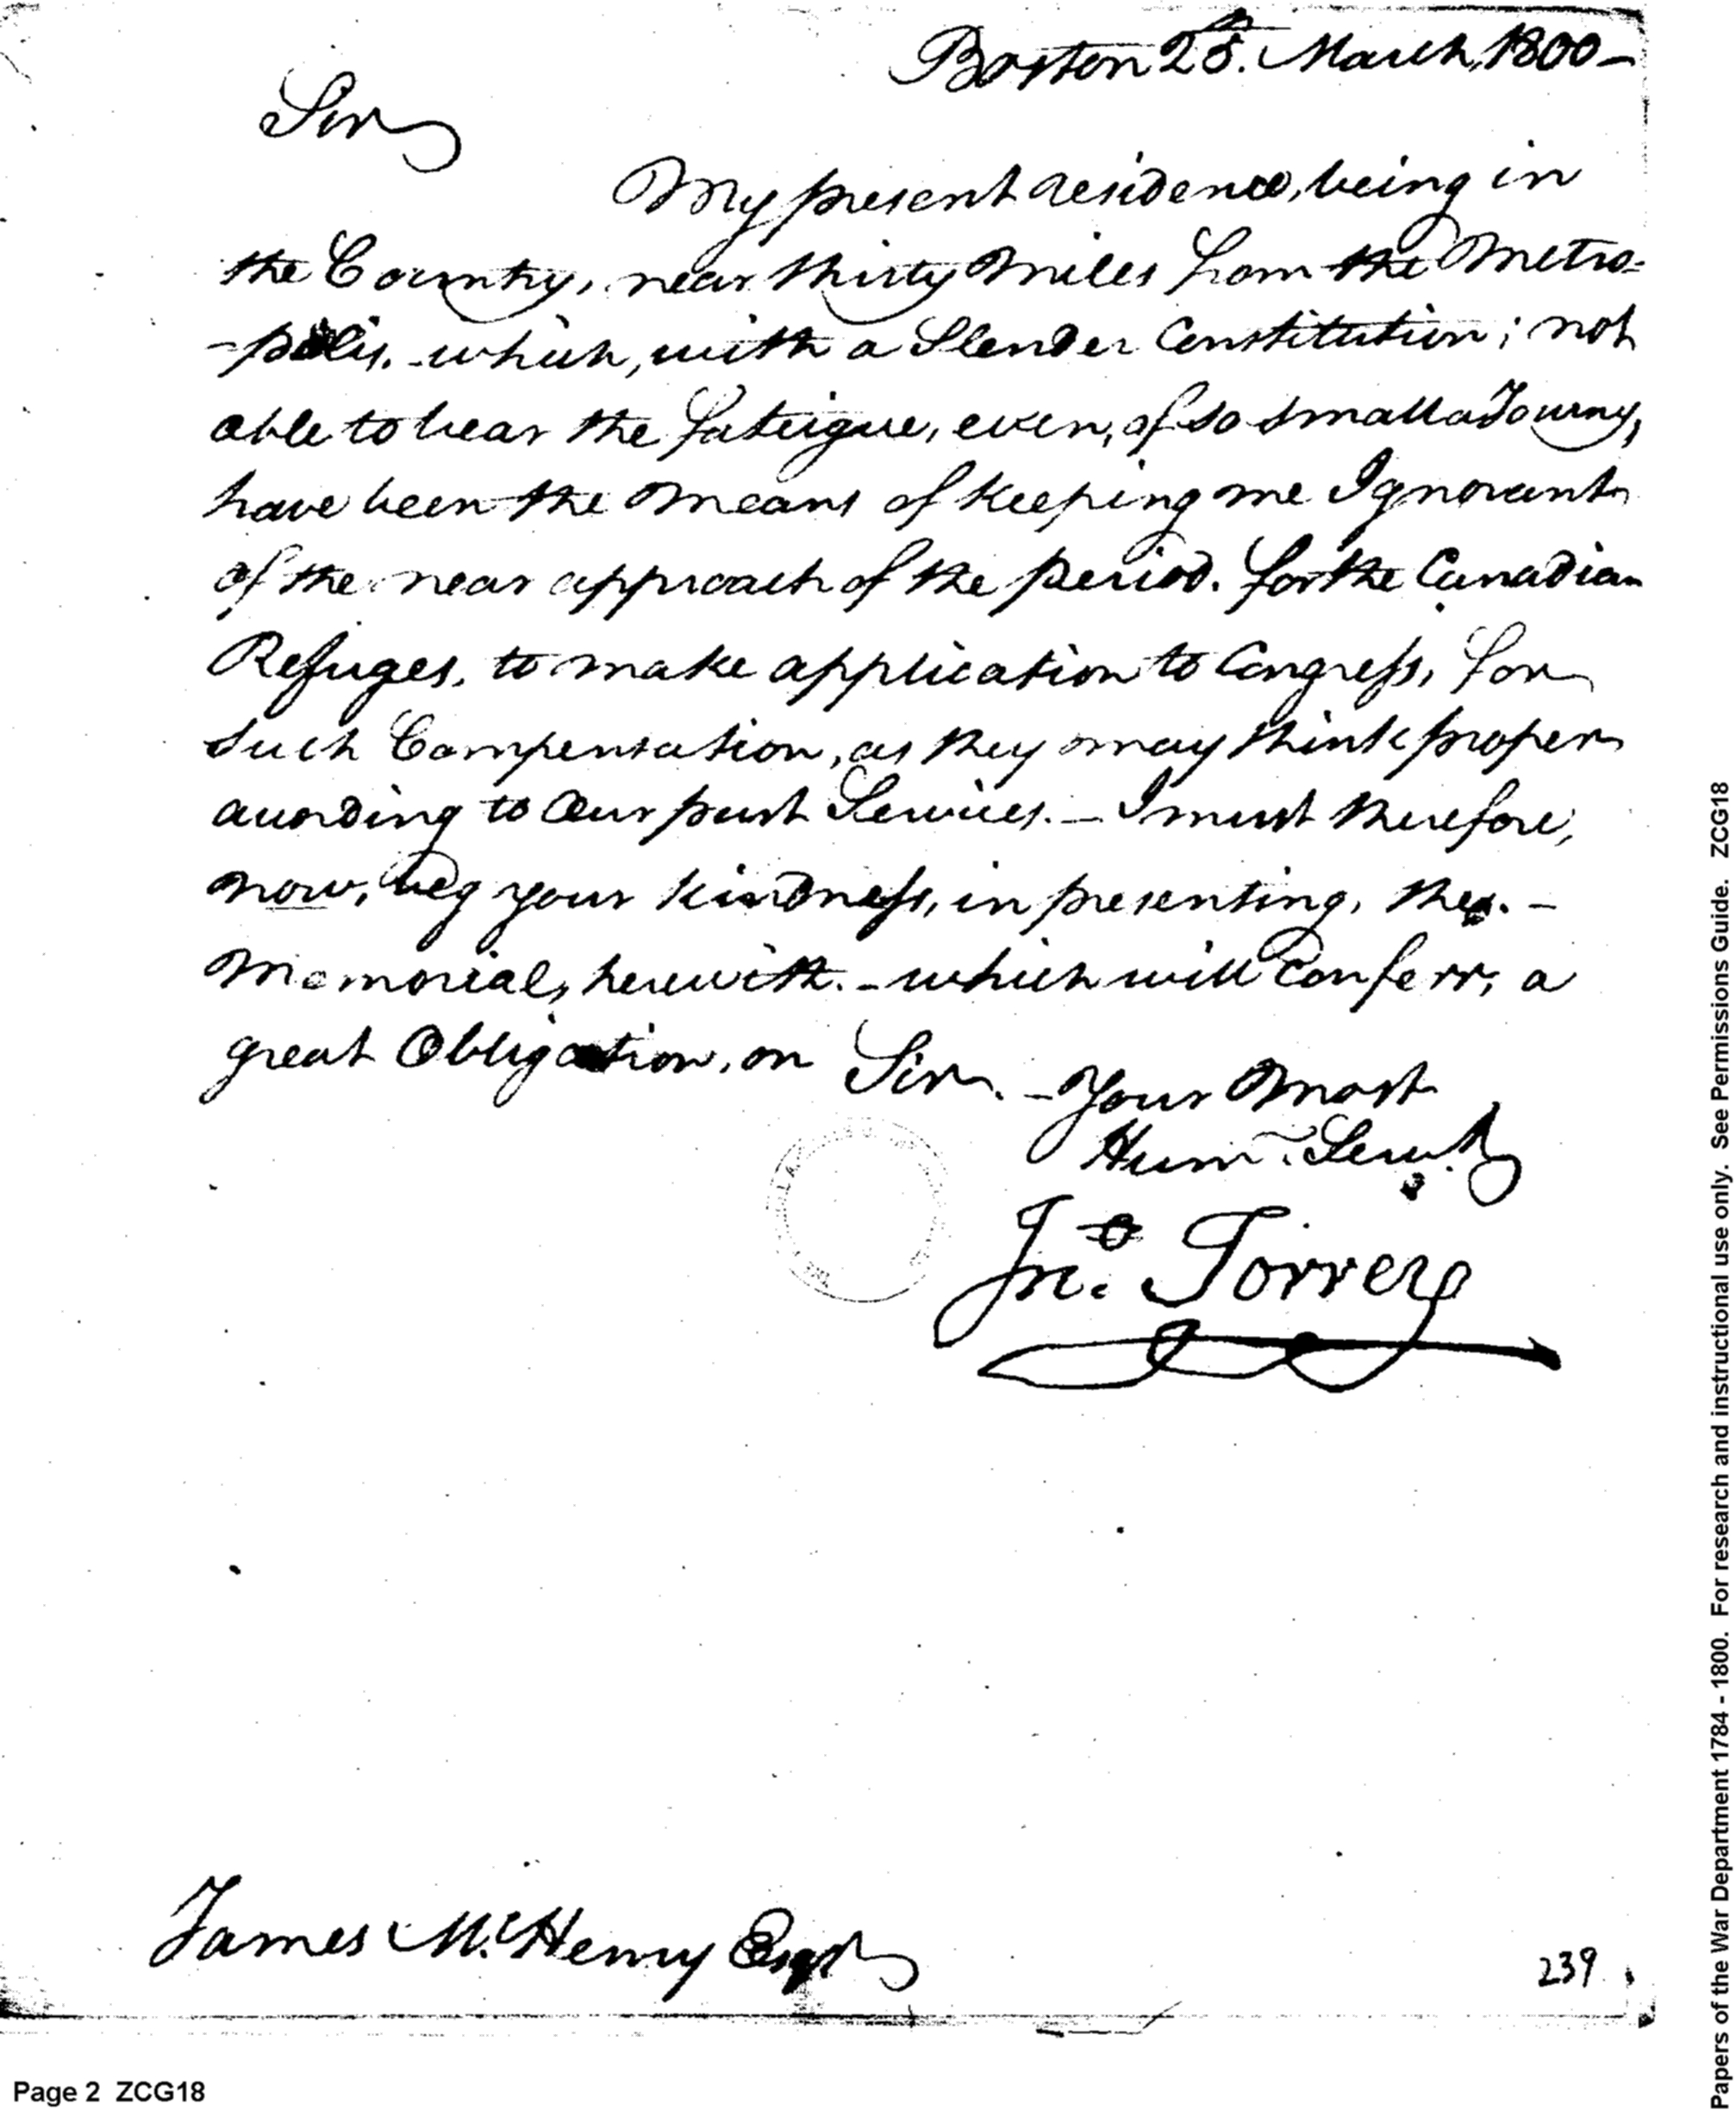 Boston 28th. March, 1800 -
Sir
My present residence, being in
the Country, near thirty Miles from the Metro-
-polis, - which, with a Slender Constitution; not
able to bear the fateigue, even, of so small a Journy,
have been the Means of keeping me Ignorant
of the near approach of the period. for the Canadian
Refuges, to make application to Congress, for
Such Compensation, as they may think proper
according to Our past Services. - I must therefore,
now, beg your kindness, in presenting, the. -
Memorial, herewith. - which will Conferr, a
great Obligation, on Sir. - Your Most
Humₑ. Servt
Jno. Torrey
James McHenry Esqr
239
Page 2 ZCG18
Papers of the War Department 1784 - 1800. For research and instructional use only. See Permissions Guide. ZCG18